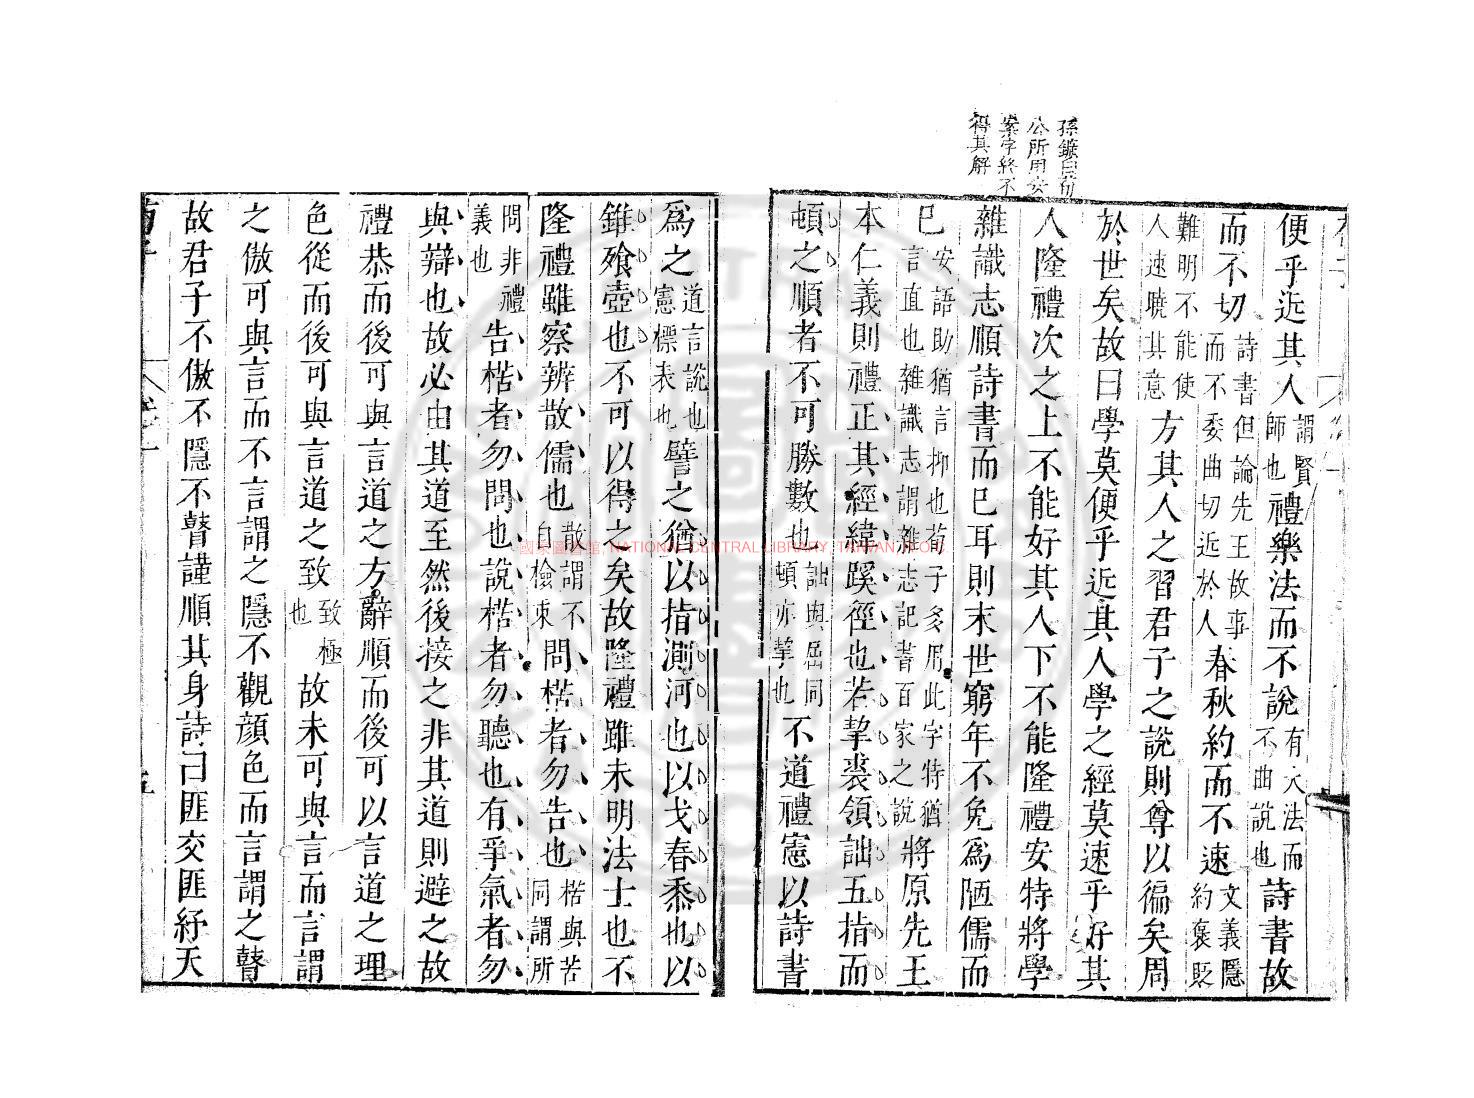 孫鑛曰荀
公所用安
案字終不
得其解
便乎近其人謂賢師也禮樂法而不說有大法而不曲說也詩書故
而不切詩書但論先王故事而不委曲切近於人春秋約而不速文義隱約褒貶
難明不能使人速曉其意方其人之習君子之說則尊以徧矣周
於世矣故曰學莫便乎近其人學之經莫速乎好其
人隆禮次之上不能好其人下不能隆禮安特將學
雜識志順詩書而已耳則末世窮年不免爲陋儒而
已安語助猶言抑也荀子多用此字特猶言直也雜識志謂雜志記書百家之說將原先王
本仁義則禮正其經緯蹊徑也若挈裘領詘五指而
頓之順者不可勝數也詘與屈同頓亦挈也不道禮憲以詩書
爲之道言說也憲標表也譬之猶以指測河也以戈舂黍也以
錐飱壺也不可以得之矣故隆禮雖未明法士也不
隆禮雖察辨散儒也散謂不自檢束問楛者勿告也楛與苦同謂所
問非禮義也告楛者勿問也說楛者勿聽也有爭氣者勿
與辯也故必由其道至然後接之非其道則避之故
禮恭而後可與言道之方辭順而後可以言道之理
色從而後可與言道之致致極也故未可與言而言謂
之傲可與言而不言謂之隱不觀顔色而言謂之瞽
故君子不傲不隱不瞽謹順其身詩曰匪交匪紓天
國家圖書館, NATIONAL CENTRAL LIBRARY, TAIWAN, R.O.C.